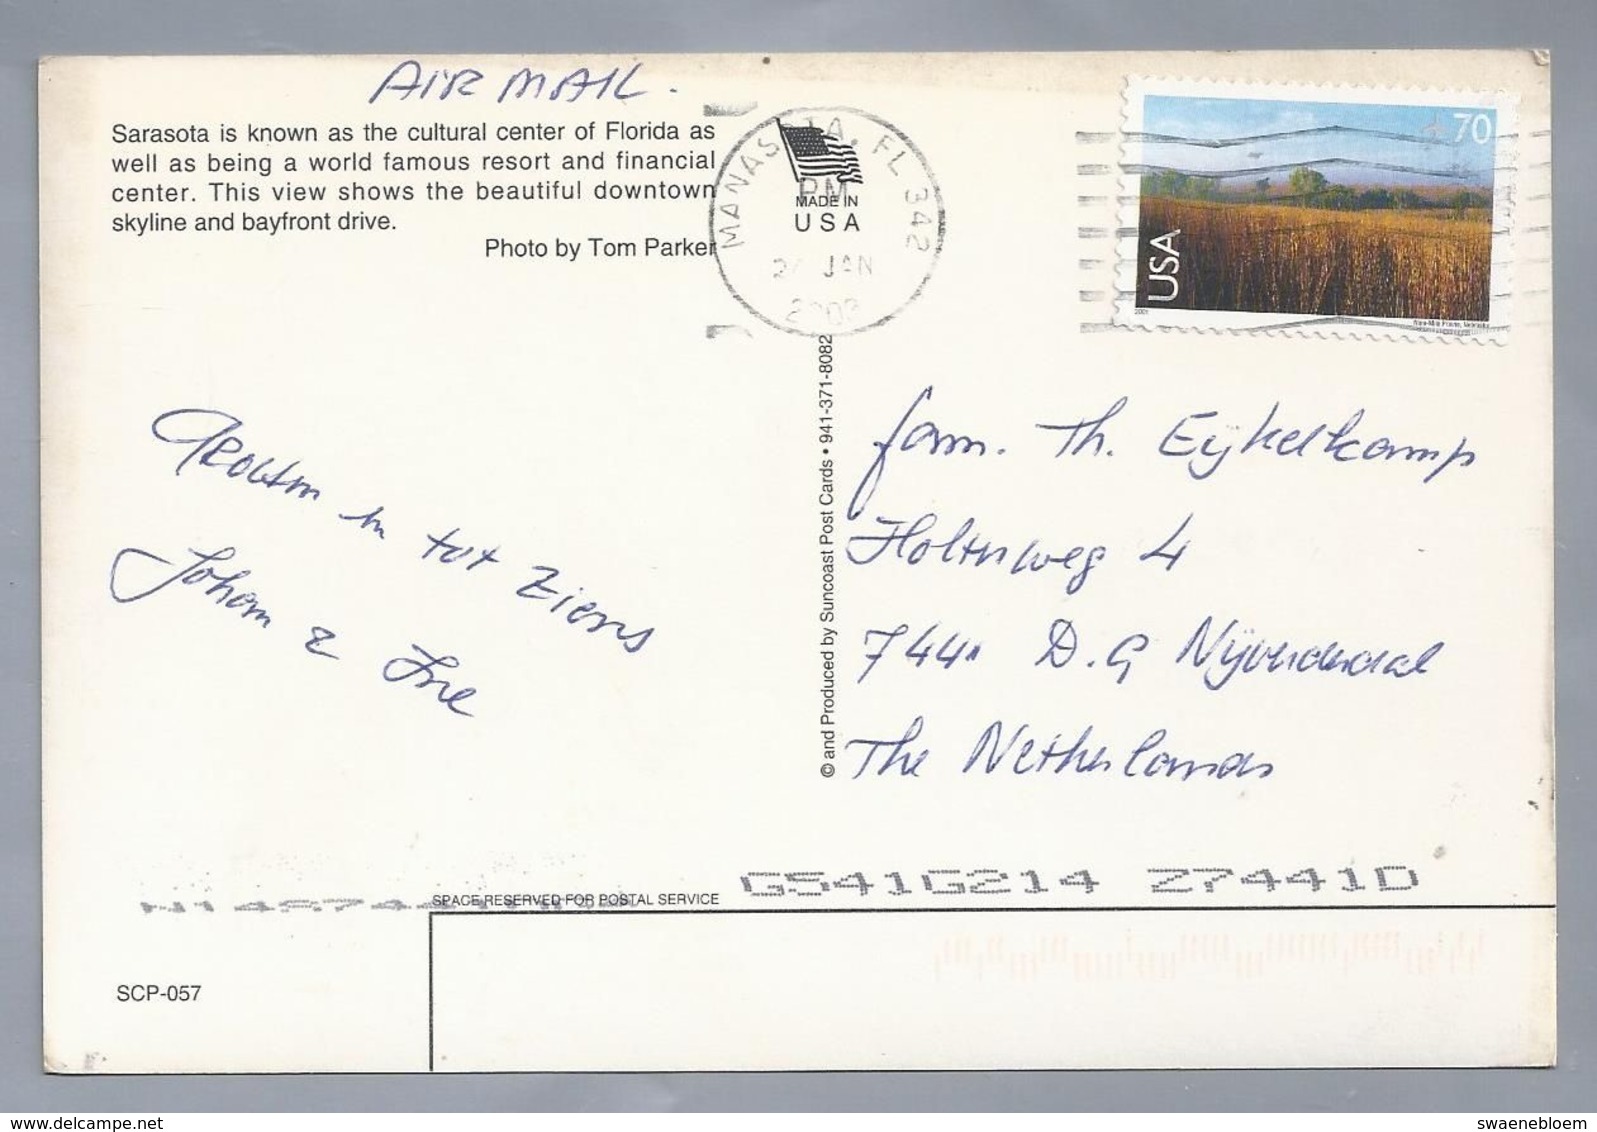 AIR MAIL.
Sarasota is known as the cultural center of Florida as
well as being a world famous resort and financial
center. This view shows the beautiful downtown
skyline and bayfront drive.
Photo by Tom Parker
MANASOTA, FL 342
PM
JAN
MADE IN
USA
70
USA
2001
Nine-Mile Prairie, Nebraska
© and Produced by Suncoast Post Cards • 941-371-8082
Groeten en tot ziens
Johan & Ine
fam. Th. Eykelkamp
Holterweg 4
7441 D.G Nijverdal
The Netherlands
G541G214 Z7441D
SPACE RESERVED FOR POSTAL SERVICE
SCP-057
www.delcampe.net
swaenebloem